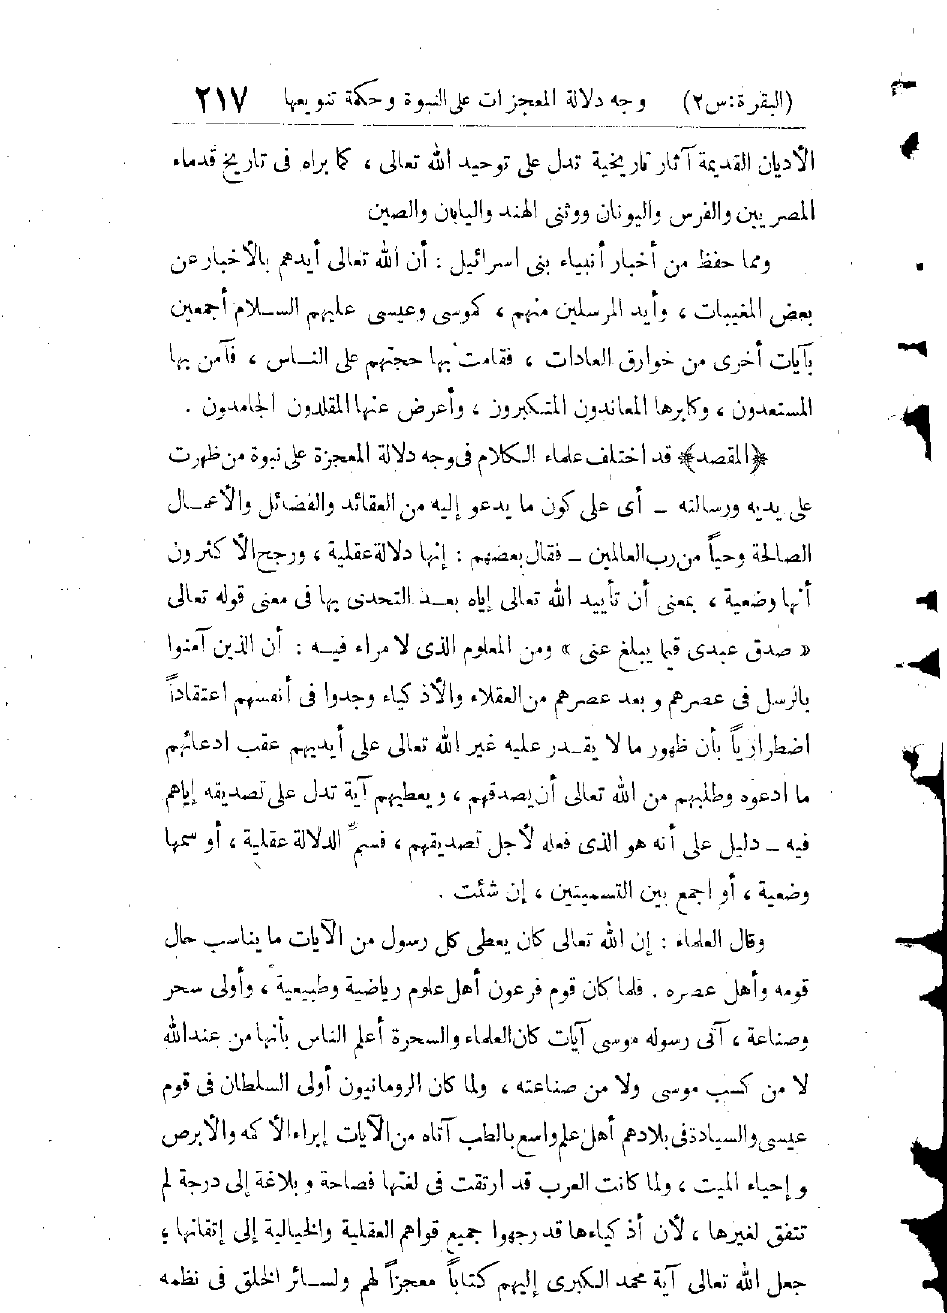 (البقرة:س٢) وجه دلالة المعجزات على النبوة وحكمة تنويعها ٢١٧
الأديان القديمة آثار تاريخية تدل على توحيد الله تعالى ، كما يراه فى تاريخ قدماء
المصريين والفرس واليونان ووثنى الهند واليابان والصين
ومما حفظ من أخبار أنبياء بنى اسرائيل : أن الله تعالى أيدهم بالأخبار عن
بعض المغيبات ، وأيد المرسلين منهم ، كموسى وعيسى عليهم السلام أجمعين
بآيات أخرى من خوارق العادات ، فقامت بها حجتهم على الناس ، فآمن بها
المستعدون ، وكابرها المعاندون المتكبرون ، وأعرض عنها المقلدون الجامدون .
﴿المقصد﴾ قد اختلف علماء الكلام فى وجه دلالة المعجزة على نبوة من ظهرت
على يديه ورسالته – أى على كون ما يدعو إليه من العقائد والفضائل والأعمال
الصالحة وحياً من رب العالمين – فقال بعضهم : إنها دلالة عقلية ، ورجح الأكثرون
أنها وضعية ، بمعنى أن تأييد الله تعالى إياه بعد التحدى بها فى معنى قوله تعالى
« صدق عبدى فيما يبلغ عنى » ومن المعلوم الذى لا مراء فيه : أن الذين آمنوا
بالرسل فى عصرهم وبعد عصرهم من العقلاء والأذكياء وجدوا فى أنفسهم اعتقاداً
اضطرارياً بأن ظهور ما لا يقدر عليه غير الله تعالى على أيديهم عقب ادعائهم
ما ادعوه وطلبهم من الله تعالى أن يصدقهم ، ويعطيهم آية تدل على تصديقه إياهم
فيه – دليل على أنه هو الذى فعله لأجل تصديقهم ، فسمِّ الدلالة عقلية ، أو سمها
وضعية ، أو اجمع بين التسميتين ، إن شئت .
وقال العلماء : إن الله تعالى كان يعطى كل رسول من الآيات ما يناسب حال
قومه وأهل عصره . فلما كان قوم فرعون أهل علوم رياضية وطبيعية ، وأولى سحر
وصناعة ، آتى رسوله موسى آيات كان العلماء والسحرة أعلم الناس بأنها من عند الله
لا من كسب موسى ولا من صناعته ، ولما كان الرومانيون أولى السلطان فى قوم
عيسى والسيادة فى بلادهم أهل علم واسع بالطب آتاه من الآيات إبراء الأكمه والأبرص
وإحياء الميت ، ولما كانت العرب قد ارتقت فى لغتها فصاحة وبلاغة إلى درجة لم
تتفق لغيرها ، لأن أذكياءها قد وجهوا جميع قواهم العقلية والخيالية إلى إتقانها ،
جعل الله تعالى آية محمد الكبرى إليهم كتاباً معجزاً لهم ولسائر الخلق فى نظمه